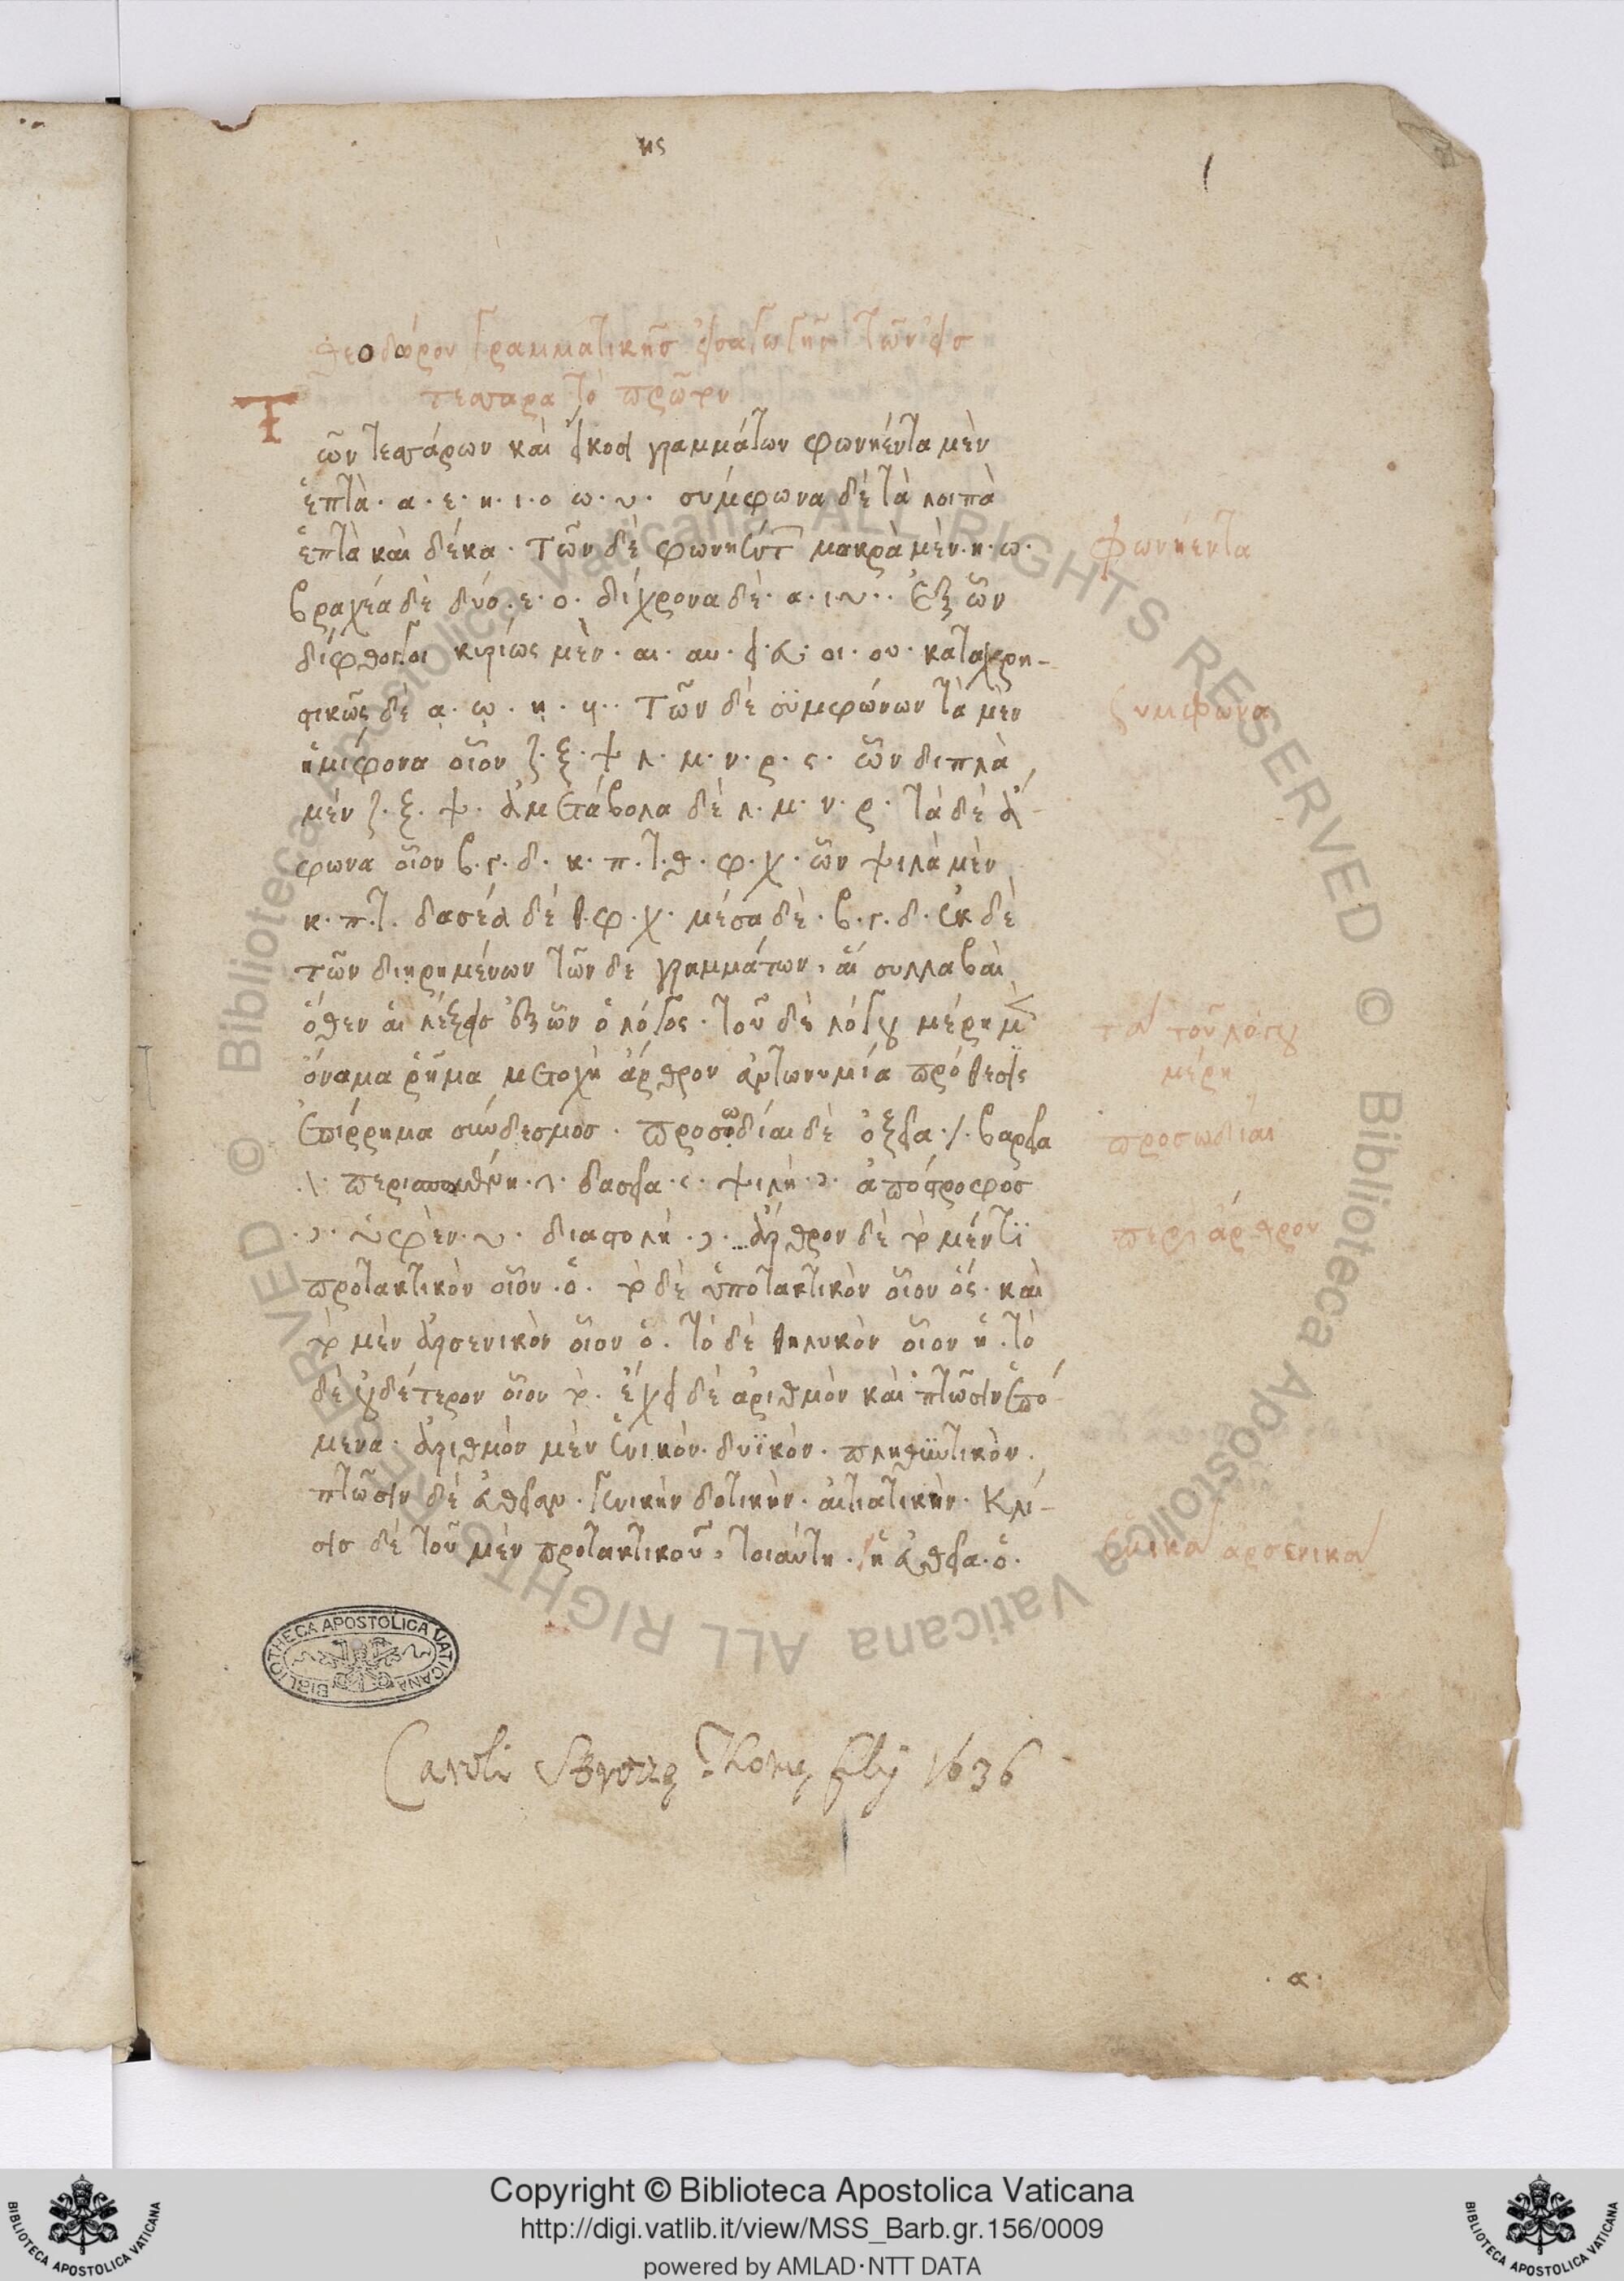 κς
1
Θεοδώρου γραμματικῆς εἰσαγωγῆς τῶν εἰς
τέσσαρα τὸ πρῶτον
Τῶν τεσσάρων καὶ εἴκοσι γραμμάτων φωνήεντα μὲν
ἑπτὰ· α· ε· η· ι· ο ω· υ· σύμφωνα δὲ τὰ λοιπὰ
ἑπτὰ καὶ δέκα· τῶν δὲ φωνηέντ μακρὰ μὲν· η· ω·
φωνήεντα
βραχέα δὲ δύο· ε· ο· δίχρονα δὲ· α· ι· υ·· ἐξ ὧν
δίφθογγοι κυρίως μὲν· αι· αυ· ει· ευ· οι· ου· καταχρη-
στικῶς δὲ ᾳ· ῳ· ῃ· υι·· τῶν δὲ συμφώνων τὰ μὲν
ξυμφωνα
ἡμίφονα οἷον ζ· ξ· ψ λ· μ· ν· ρ· ς· ὧν διπλὰ
μὲν ζ· ξ· ψ· ἀμετάβολα δὲ λ· μ· ν· ρ· τὰ δὲ ἄ-
φωνα οἷον β· γ· δ· κ· π· τ· θ· φ· χ· ὧν ψιλὰ μὲν
κ· π· τ· δασέα δὲ θ· φ· χ· μέσα δὲ· β· γ· δ· ἐκ δὲ
τῶν διῃρημένων τῶν δε γραμμάτων, αἱ συλλαβαὶ
ὅθεν αἱ λέξεις ἐξ ὧν ὁ λόγος· τοῦ δὲ λόγου μέρη μὲν
τα τοῦ λόγου
ὄναμα ῥῆμα μετοχὴ ἄρθρον ἀντωνυμία πρόθεσις
μέρη
ἐπίρρημα σύνδεσμος· προσῳδίαι δὲ ὀξεῖα· /· βαρεῖα
προσωδίαι
\· περισπωμένη· ~· δασεῖα· ς· ψιλὴ· ͗· ἀπόστροφος
·̓· ὑφὲν· υ· διαστολὴ·,· ἄρθρον δὲ τὸ μέντϊ
περὶ ἄρθρον
προτακτικὸν οἷον· ὁ· τὸ δὲ ὑποτακτικὸν οἷον ὅς· καὶ
τὸ μὲν ἀρσενικὸν οἷον ὁ· τὸ δὲ θηλυκὸν οἷον ἡ· τὸ
δὲ οὐδέτερον οἷον τὸ· ἔχει δὲ ἀριθμὸν καὶ πτῶσιν ἑπό-
μενα· ἀριθμὸν μὲν ἑνικὸν· δυϊκὸν· πληθϋντικὸν·
πτῶσιν δὲ εὐθεῖαν· γενικὴν δοτικὴν· αἰτιατικὴν· Κλί-
σις δὲ τοῦ μὲν προτακτικοῦ, τοιαύτη· ἡ εὐθεῖα· ὁ·
ἑνικα αρσενικα
BIBLIOTHECA APOSTOLICA VATICANA
Caroli Strozzæ Thomæ filij 1636
· α·
© Biblioteca Apostolica Vaticana ALL RIGHTS RESERVED © Biblioteca Apostolica Vaticana ALL RIGHTS RESERVED
Copyright © Biblioteca Apostolica Vaticana
http://digi.vatlib.it/view/MSS_Barb.gr.156/0009
powered by AMLAD·NTT DATA
BIBLIOTECA APOSTOLICA VATICANA
BIBLIOTECA APOSTOLICA VATICANA